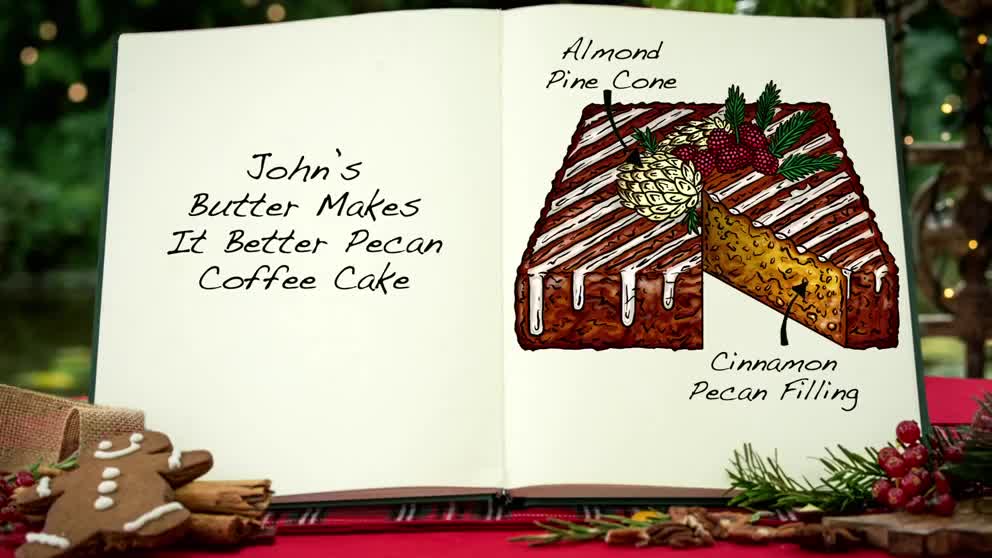 John's
Butter Makes
It Better Pecan
Coffee Cake
Almond
Pine Cone
Cinnamon
Pecan Filling